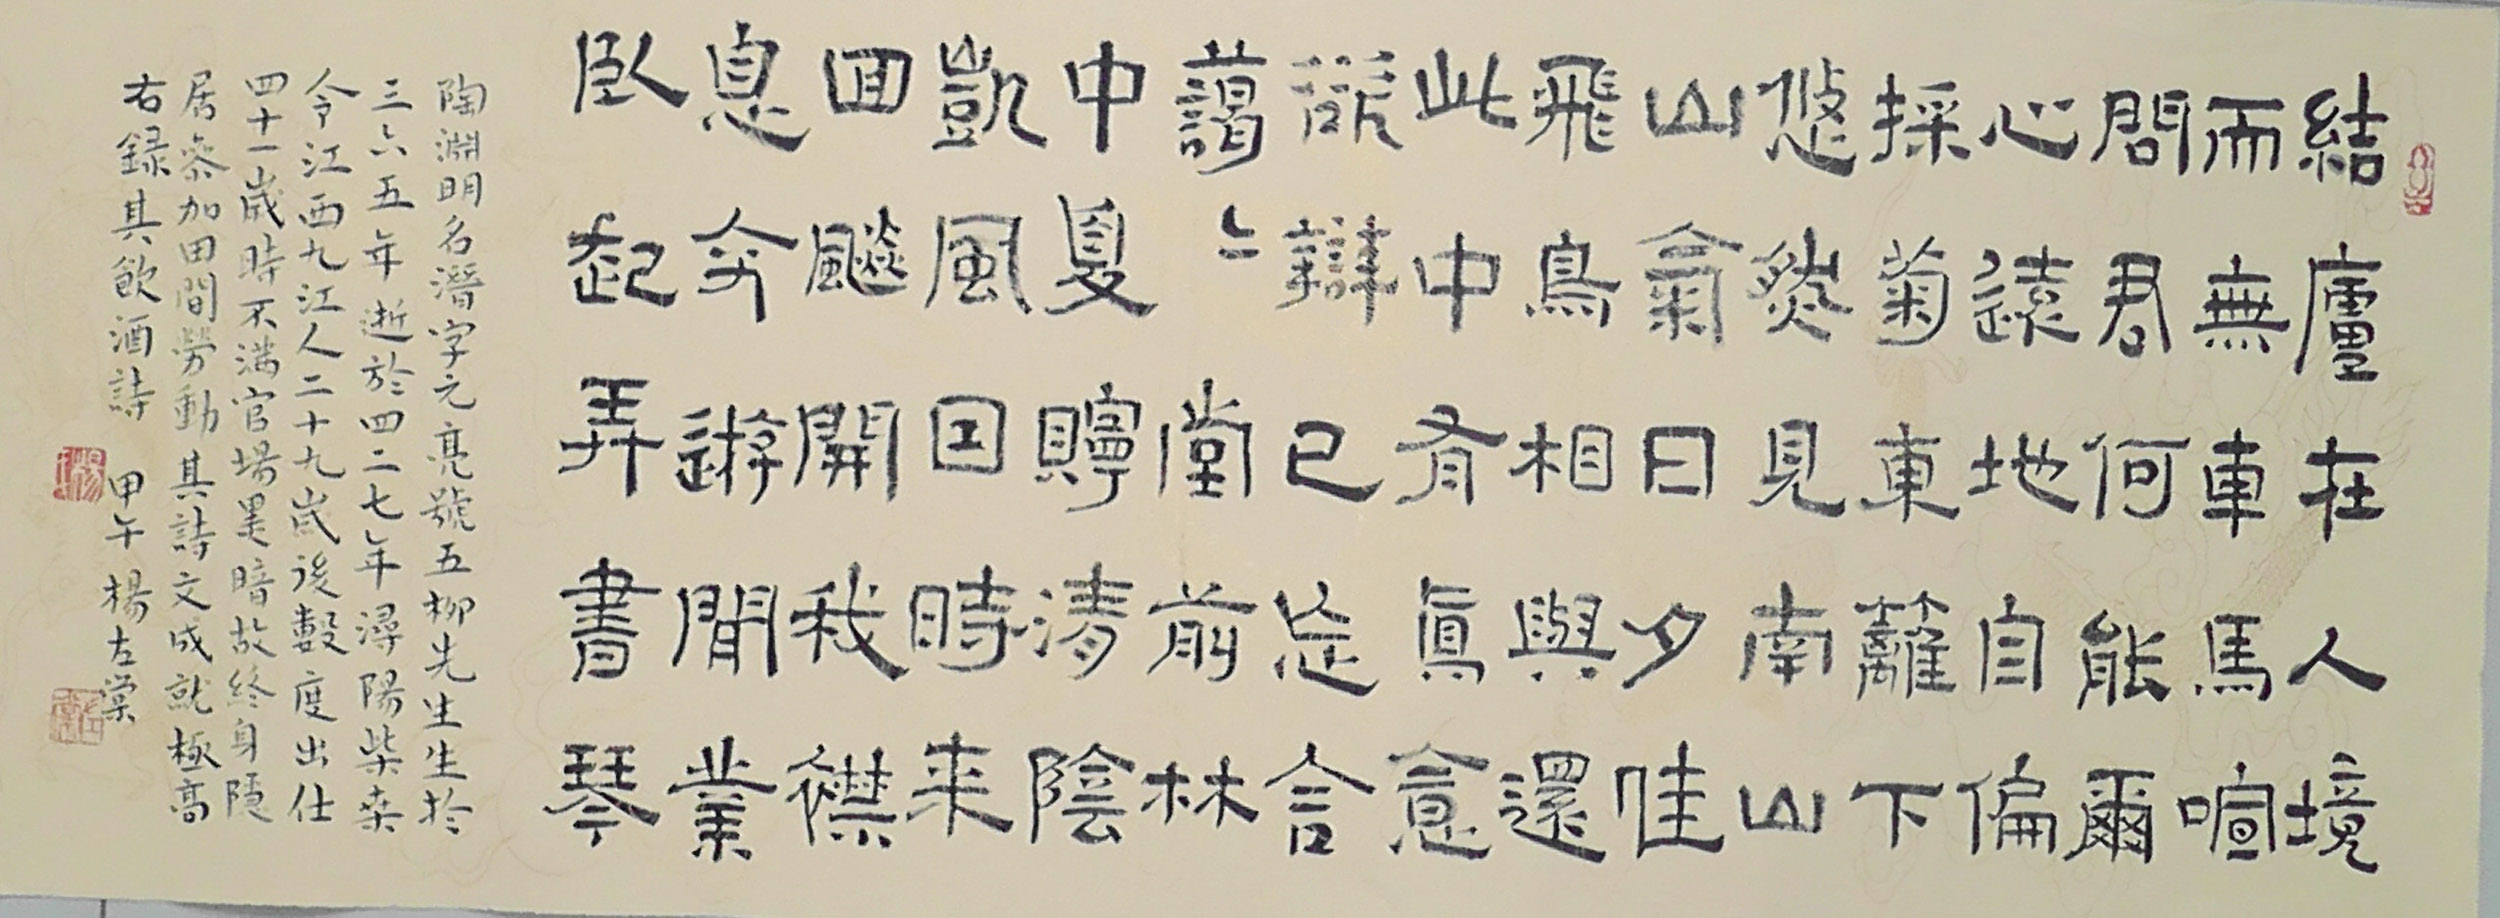 結廬在人境
而無車馬喧
問君何能爾
心遠地自偏
採菊東籬下
悠然見南山
山氣日夕佳
飛鳥相與還
此中有真意
欲辯已忘言
藹〻堂前林
中夏貯清陰
凱風因時来
回飈開我襟
息交遊閒業
臥起弄書琴
陶淵明名潛字元亮號五柳先生生於
三六五年逝於四二七年潯陽柴桒
令江西九江人二十九歲後數度出仕
四十一歲時不滿官場黑暗故終身隱
居參加田間勞動其詩文成就極高
右録其飲酒詩 甲午楊左棠